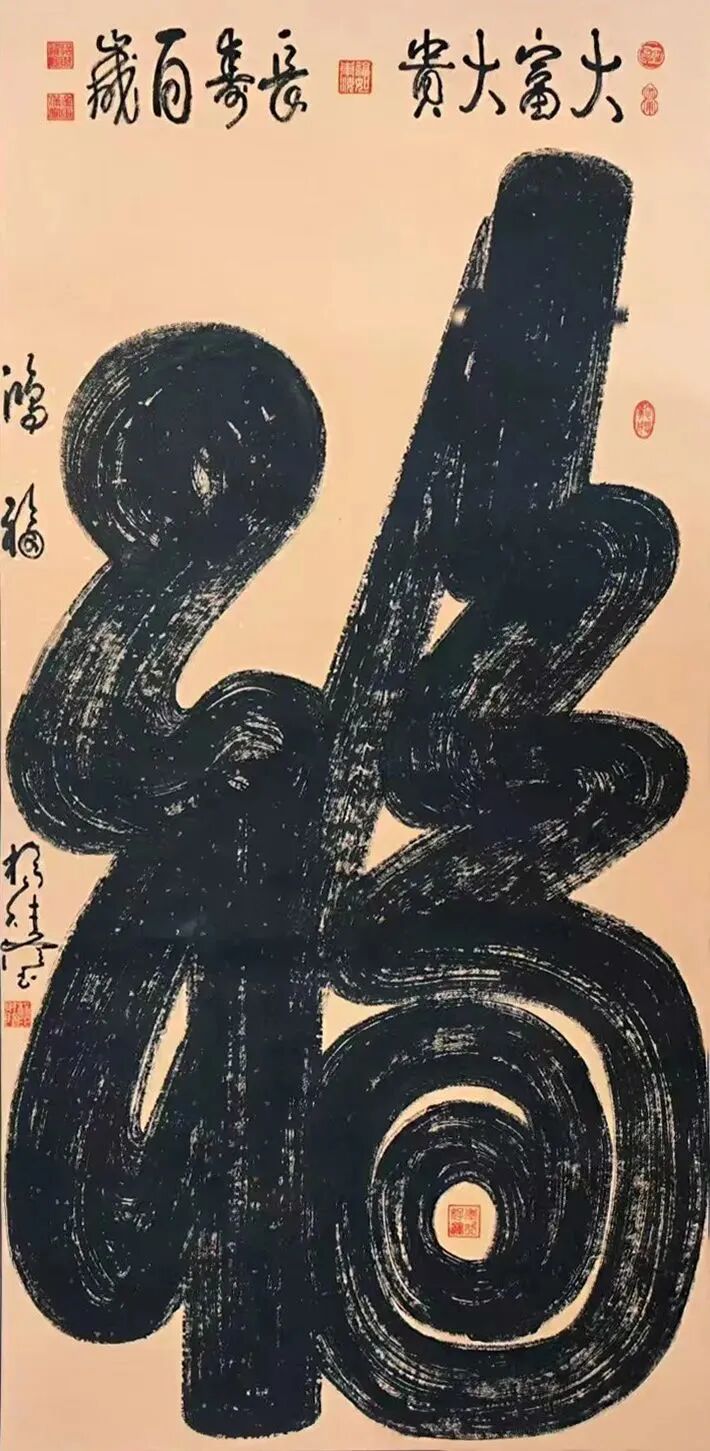 大富大貴
長壽百歲
福
鴻福